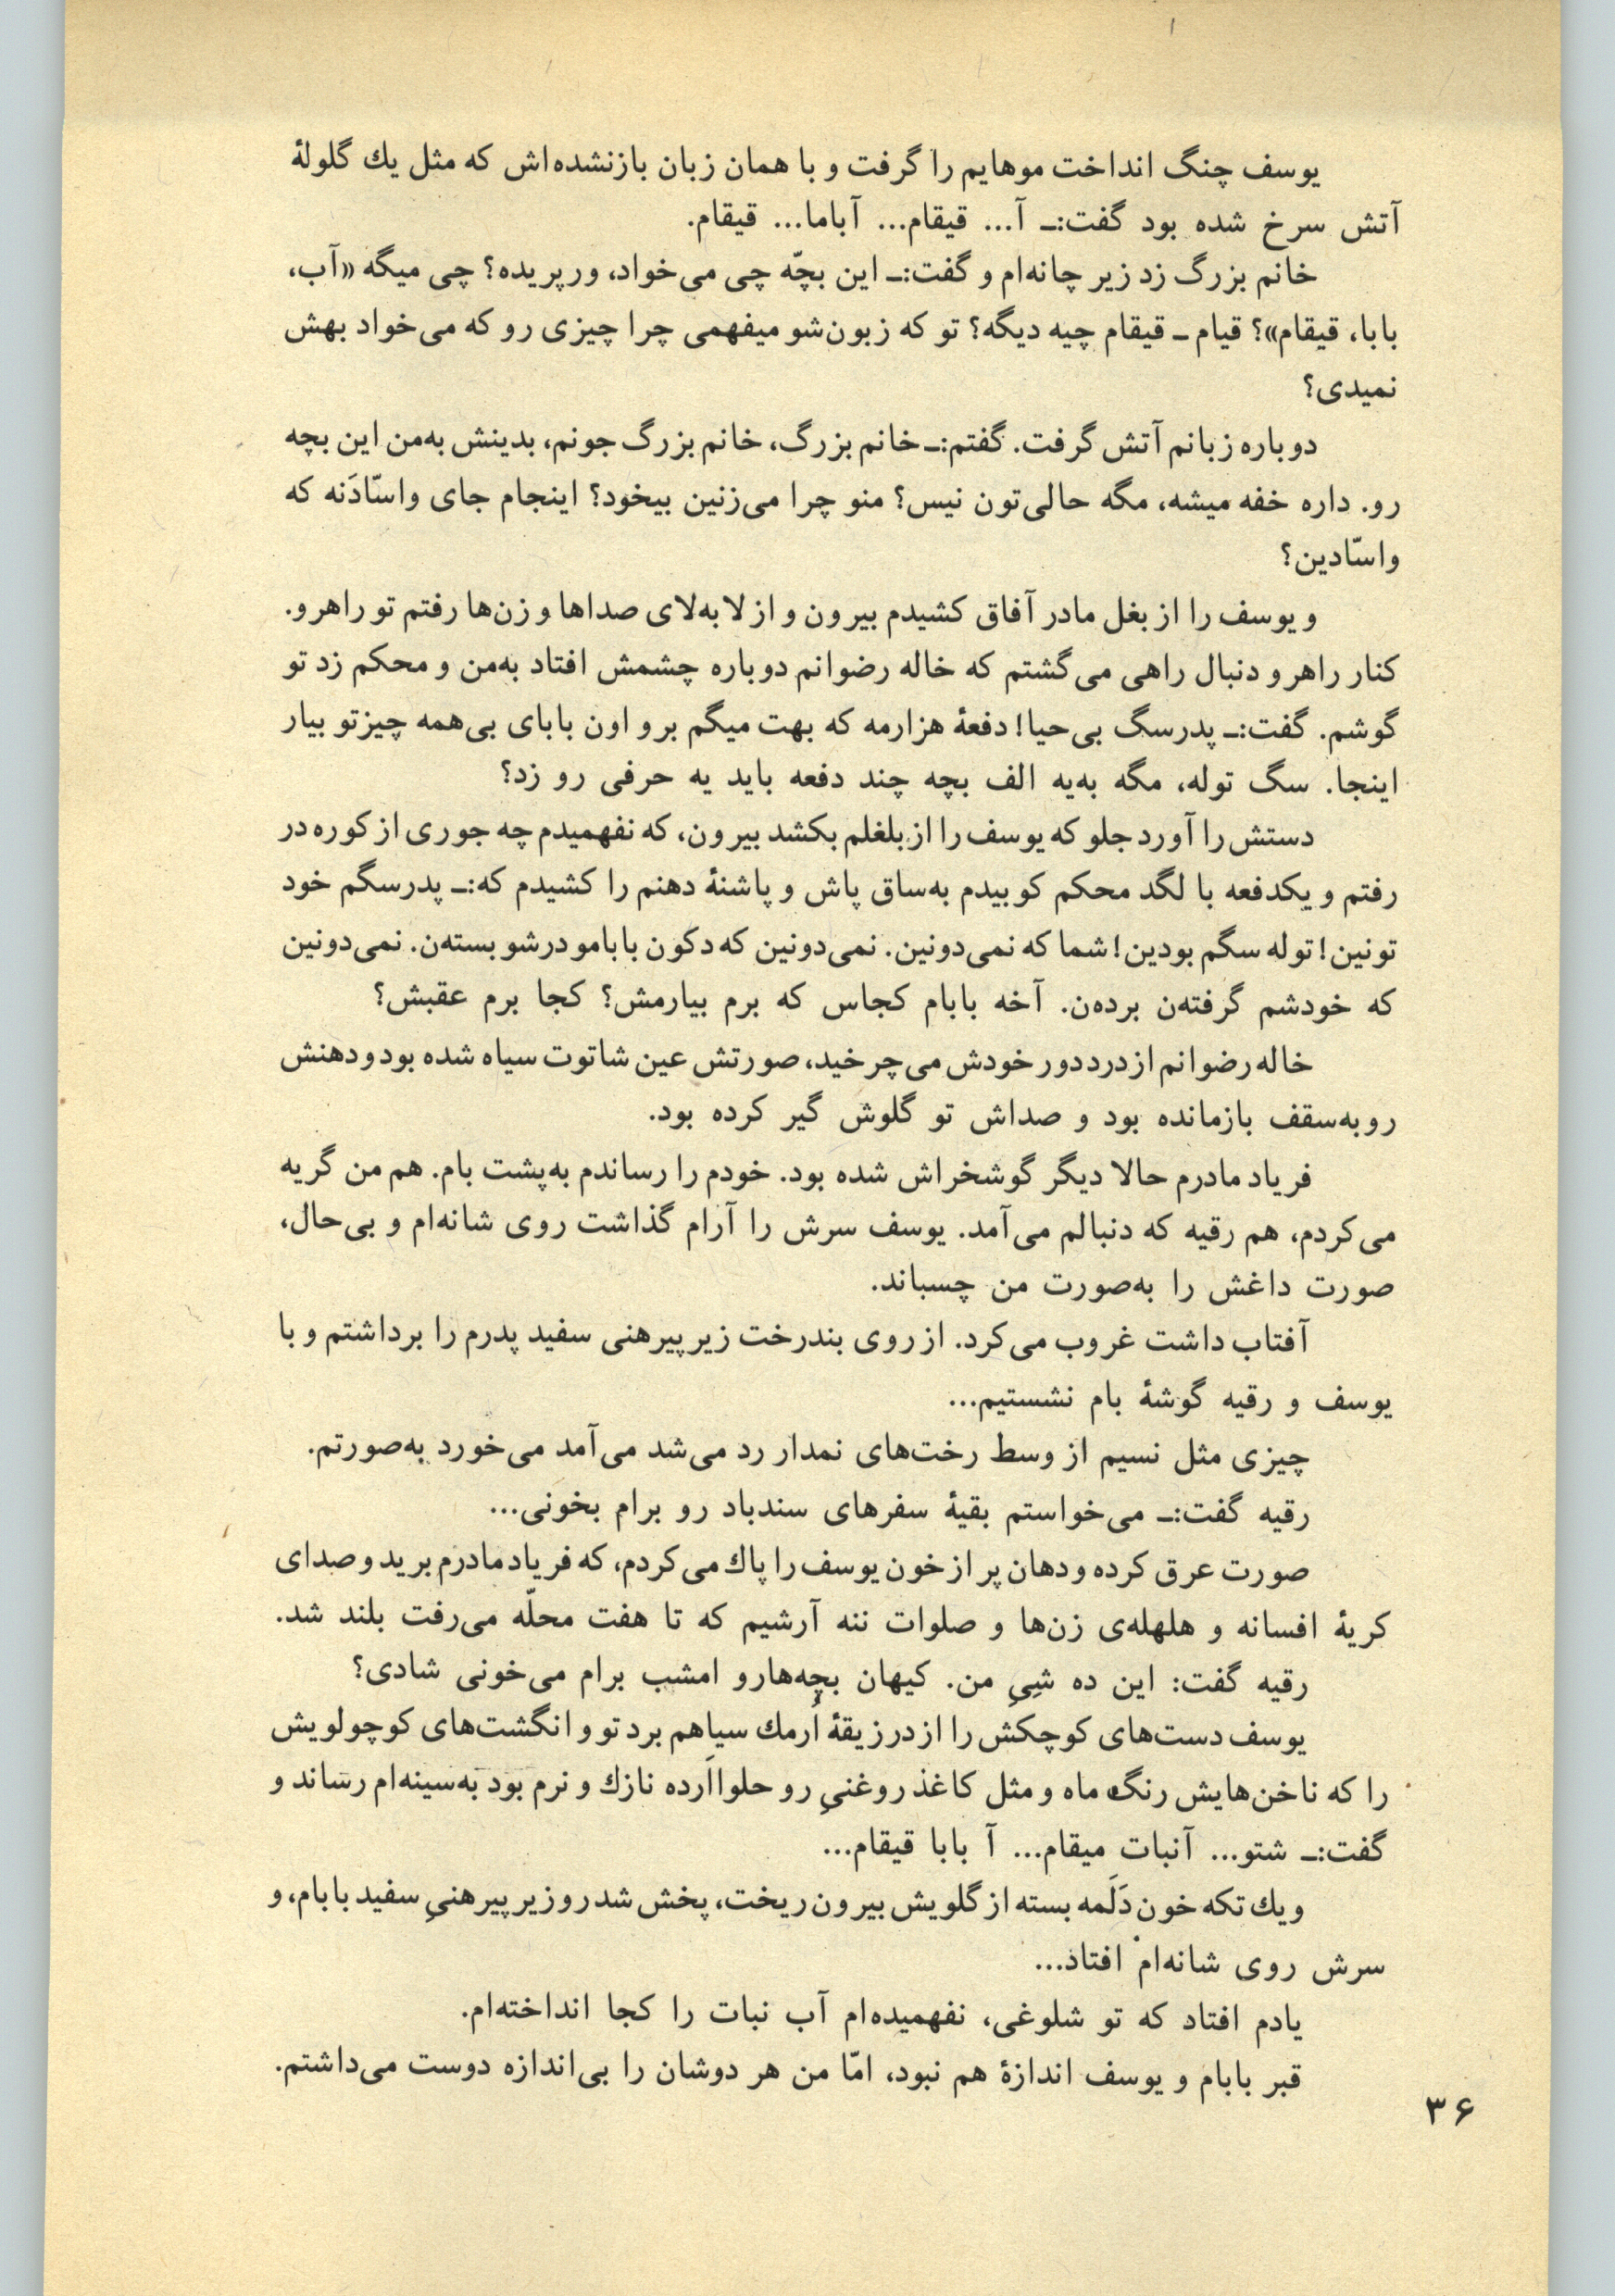 یوسف چنگ انداخت موهایم را گرفت و با همان زبان بازنشده‌اش که مثل یك گلولهٔ
آتش سرخ شده بود گفت:ـ آ... قیقام... آباما... قیقام.
خانم بزرگ زد زیر چانه‌ام و گفت:ـ این بچّه چی می‌خواد، ورپریده؟ چی میگه «آب،
بابا، قیقام»؟ قیام ـ قیقام چیه دیگه؟ تو که زبون‌شو میفهمی چرا چیزی رو که می‌خواد بهش
نمیدی؟
دوباره زبانم آتش گرفت. گفتم:ـ خانم بزرگ، خانم بزرگ جونم، بدینش به‌من این بچه
رو. داره خفه میشه، مگه حالی‌تون نیس؟ منو چرا می‌زنین بیخود؟ اینجام جای واسّادَنه که
واسّادین؟
و یوسف را از بغل مادر آفاق کشیدم بیرون و از لا به‌لای صداها و زن‌ها رفتم تو راهرو.
کنار راهرو دنبال راهی می‌گشتم که خاله رضوانم دوباره چشمش افتاد به‌من و محکم زد تو
گوشم. گفت:ـ پدرسگ بی‌حیا! دفعهٔ هزارمه که بهت میگم برو اون بابای بی‌همه چیزتو بیار
اینجا. سگ توله، مگه به‌یه الف بچه چند دفعه باید یه حرفی رو زد؟
دستش را آورد جلو که یوسف را از بلغلم بکشد بیرون، که نفهمیدم چه جوری از کوره در
رفتم و یکدفعه با لگد محکم کوبیدم به‌ساق پاش و پاشنهٔ دهنم را کشیدم که:ـ پدرسگم خود
تونین! توله سگم بودین! شما که نمی‌دونین. نمی‌دونین که دکون بابامو درشو بسته‌ن. نمی‌دونین
که خودشم گرفته‌ن برده‌ن. آخه بابام کجاس که برم بیارمش؟ کجا برم عقبش؟
خاله رضوانم از درد دور خودش می‌چرخید، صورتش عین شاتوت سیاه شده بود و دهنش
رو به‌سقف بازمانده بود و صداش تو گلوش گیر کرده بود.
فریاد مادرم حالا دیگر گوشخراش شده بود. خودم را رساندم به‌پشت بام. هم من گریه
می‌کردم، هم رقیه که دنبالم می‌آمد. یوسف سرش را آرام گذاشت روی شانه‌ام و بی‌حال،
صورت داغش را به‌صورت من چسباند.
آفتاب داشت غروب می‌کرد. از روی بندرخت زیرپیرهنی سفید پدرم را برداشتم و با
یوسف و رقیه گوشهٔ بام نشستیم...
چیزی مثل نسیم از وسط رخت‌های نمدار رد می‌شد می‌آمد می‌خورد به‌صورتم.
رقیه گفت:ـ می‌خواستم بقیهٔ سفرهای سندباد رو برام بخونی...
صورت عرق کرده و دهان پر از خون یوسف را پاك می‌کردم، که فریاد مادرم برید و صدای
کریهٔ افسانه و هلهله‌ی زن‌ها و صلوات ننه آرشیم که تا هفت محلّه می‌رفت بلند شد.
رقیه گفت: این ده شِیِ من. کیهان بچه‌هارو امشب برام می‌خونی شادی؟
یوسف دست‌های کوچکش را از درز یقهٔ اُرمك سیاهم برد تو و انگشت‌های کوچولویش
را که ناخن‌هایش رنگ ماه و مثل کاغذ روغنیِ رو حلوااَرده نازك و نرم بود به‌سینه‌ام رساند و
گفت:ـ شتو... آنبات میقام... آ بابا قیقام...
و یك تکه خون دَلَمه بسته از گلویش بیرون ریخت، پخش شد رو زیرپیرهنیِ سفید بابام، و
سرش روی شانه‌ام افتاد...
یادم افتاد که تو شلوغی، نفهمیده‌ام آب نبات را کجا انداخته‌ام.
قبر بابام و یوسف اندازهٔ هم نبود، امّا من هر دوشان را بی‌اندازه دوست می‌داشتم.
۳۶